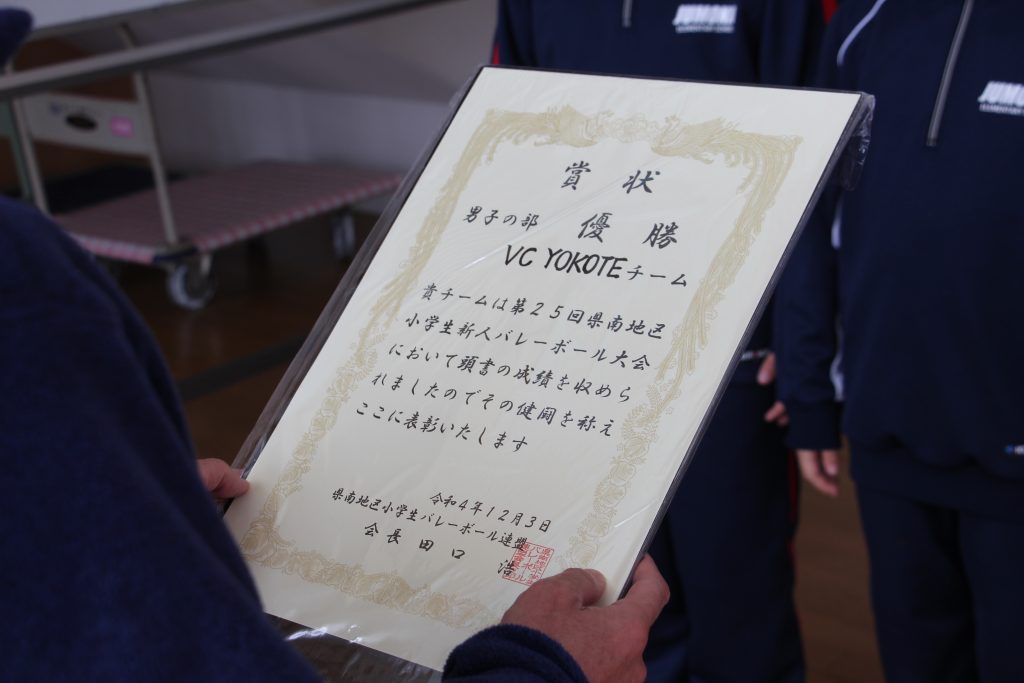 賞状
男子の部 優勝
VC YOKOTEチーム
貴チームは第25回県南地区
小学生新人バレーボール大会
において頭書の成績を収めら
れましたのでその健闘を称え
ここに表彰いたします
令和4年12月3日
県南地区小学生バレーボール連盟
会長 田口 浩